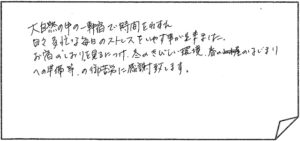 大自然の中の一軒宿で時間をわすれ
日々多忙な毎日のストレスをいやす事が出来ました。
お宿のしおりを見るにつけ、冬のきびしい環境、春のはじまり
への準備等、の御苦労に感謝致します。